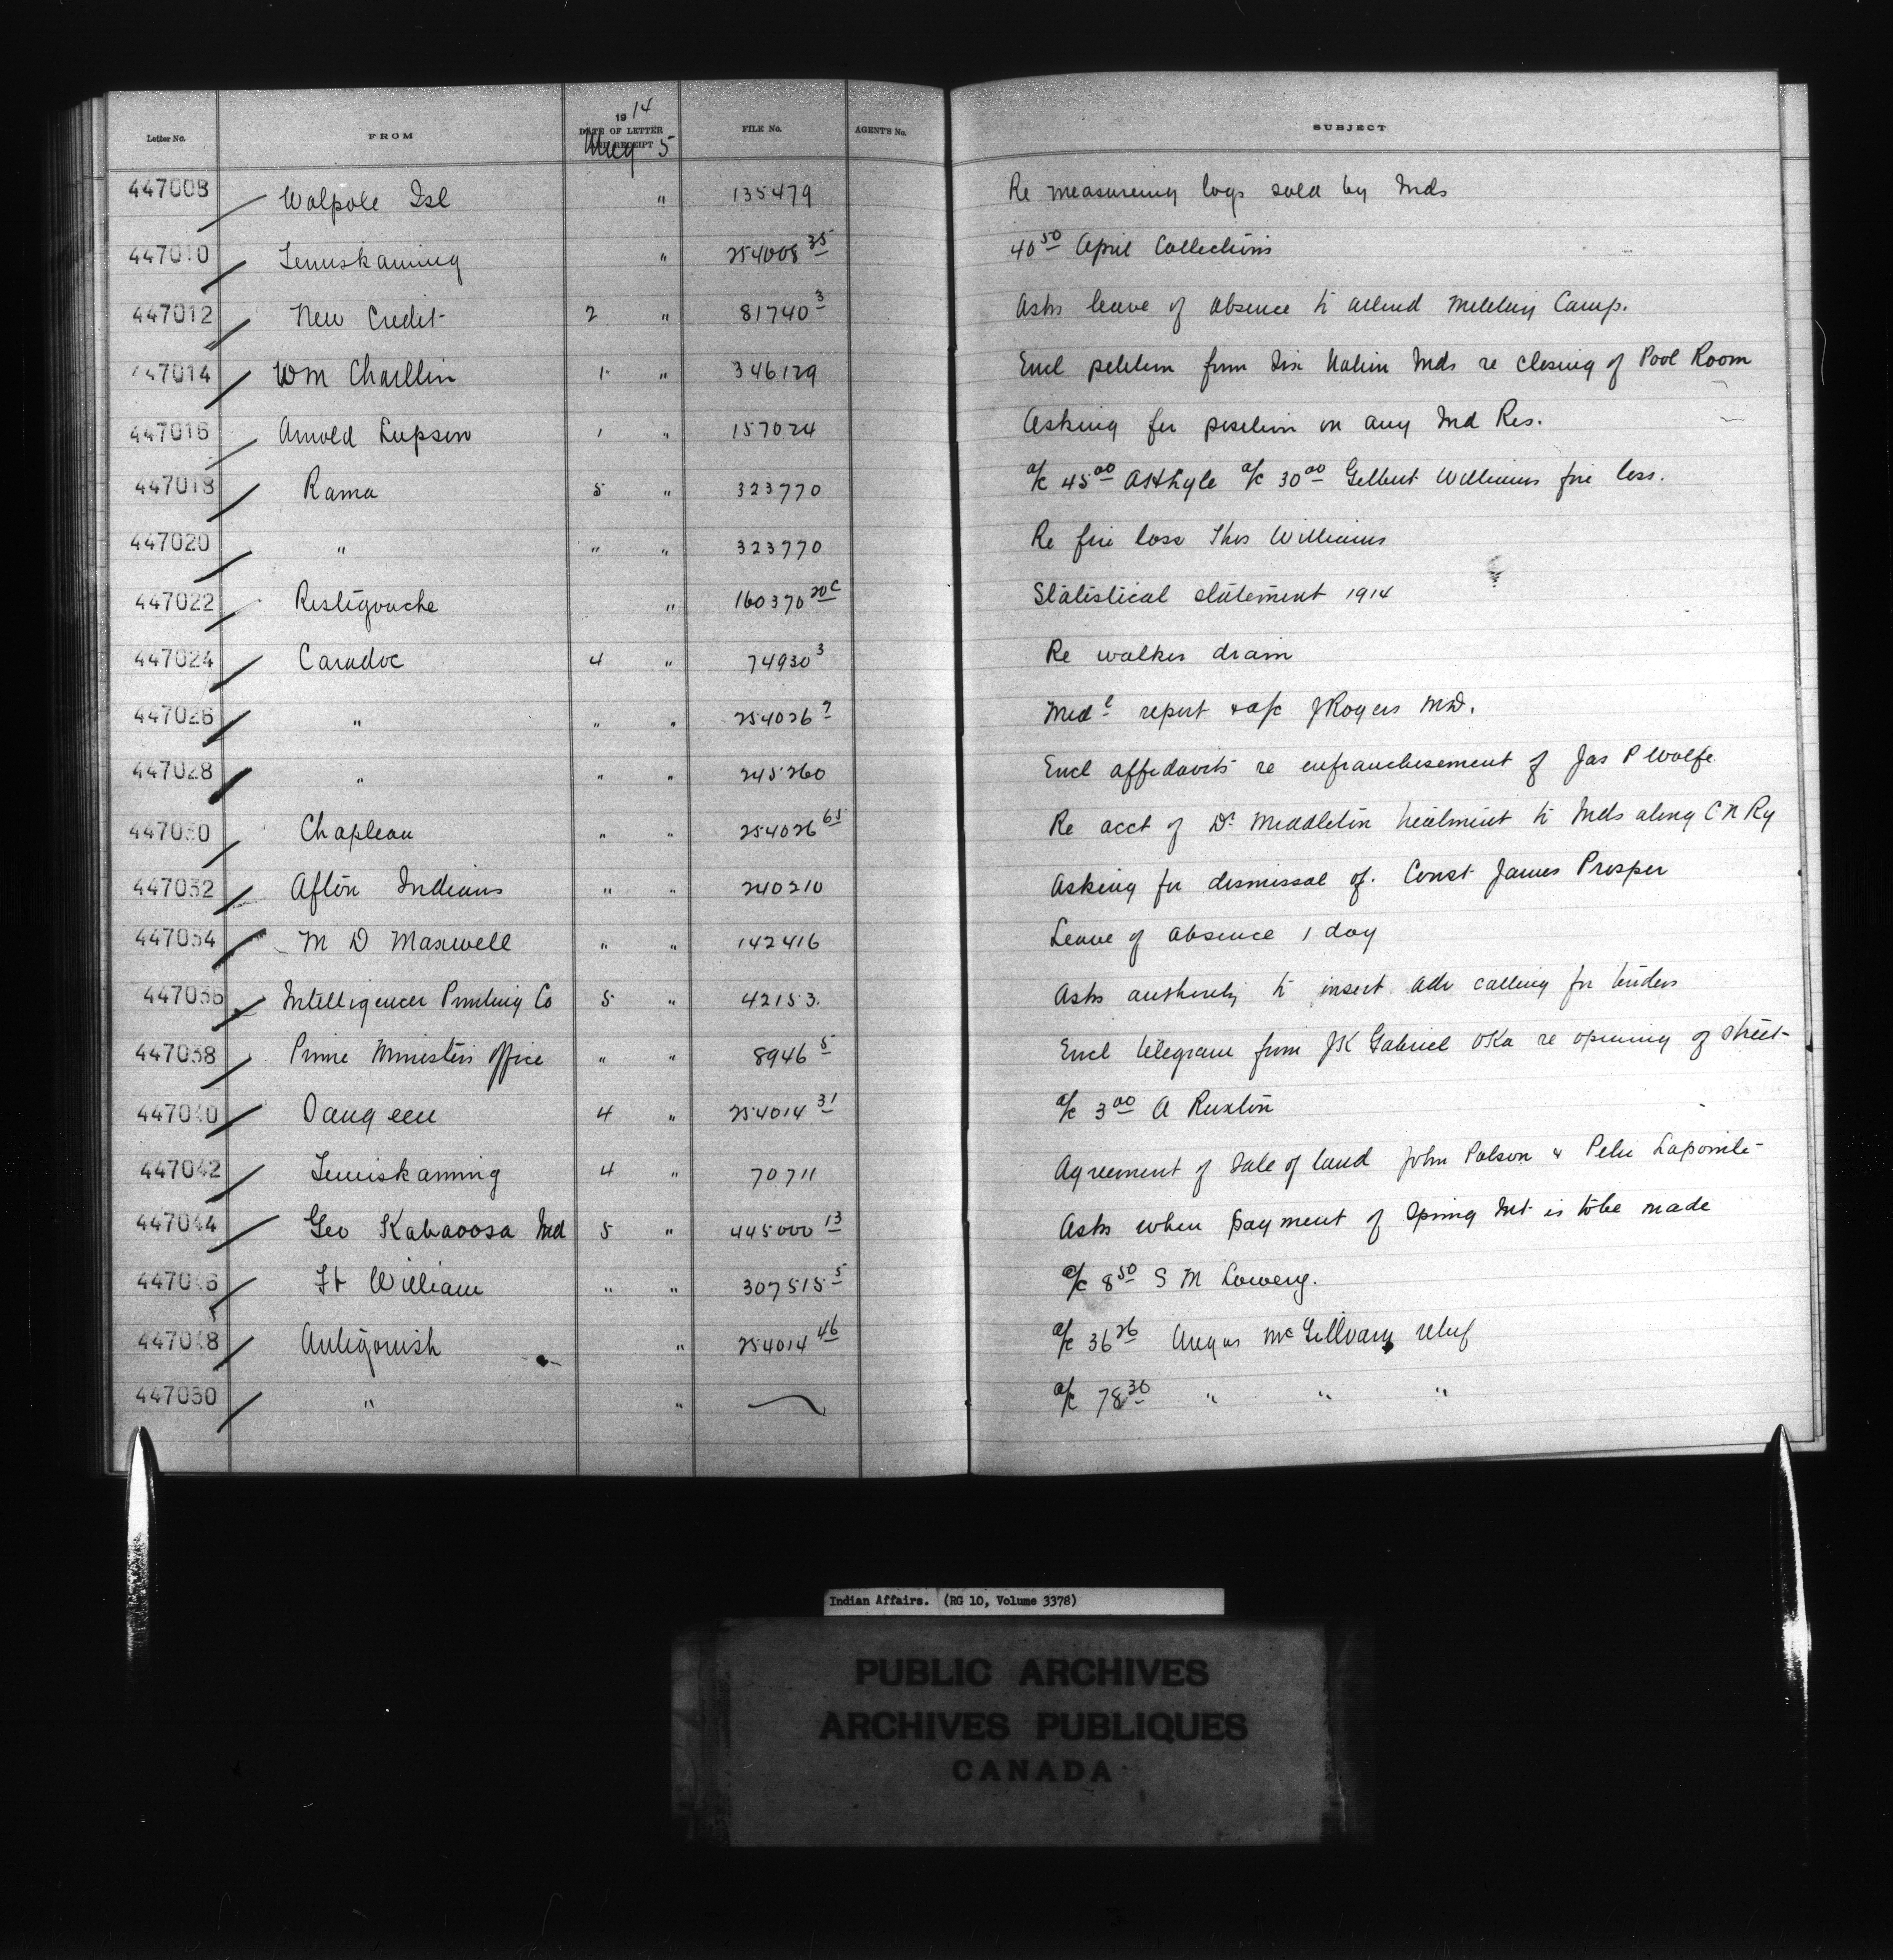 Letter No. FROM 1914 DATE OF LETTER AND RECEIPT FILE No. AGENT'S No. SUBJECT
Aug 5
447008 Walpole Isl " 135479 Re measureing logs sold by Inds
447010 Temiskaming " 254008 35 40 50 April Collections
447012 New Credit 2 " 81740 3 Asks leave of absence to attend Military Camp.
447014 Wm Charlton 1 " 346129 Encl petition from Six Nation Inds re closing of Pool Room
447016 Arnold Lupson 1 " 157024 Asking for position on any Ind Res.
447018 Rama 5 " 323770 a/c 45 00 a/c 30 00 Gilbert Williams fire loss.
447020 " " " 323770 Re fire loss Thos Williams
447022 Restigouche " 160370 20C Statistical statement 1914
447024 Caradoc 4 " 74930 3 Re walker drain
447026 " " " 254026 7 Medl report & a/c J Rogers MD.
447028 " " " 245260 Encl affidavits re enfranchisement of Jas P Wolfe
447030 Chapleau " " 254026 61 Re acct of Dr Middleton treatment to Inds along C N Ry
447032 Afton Indians " " 240210 Asking for dismissal of Const James Prosper
447034 M D Maxwell " " 142416 Leave of absence 1 day
447036 Intelligencer Printing Co 5 " 42153. Asks authority to insert adv calling for tenders
447038 Prime Ministers Office " " 8946 5 Encl telegram from JK Gabriel Oka re opening of street
447040 Saugeen 4 " 254014 31 a/c 3 00 A Ruxton
447042 Temiskaming 4 " 70711 Agreement of Sale of land John Polson & Peter Lapointe
447044 Geo Kabaoosa Ind 5 " 445000 13 Asks when payment of Spring Int is to be made
447046 Ft William " " 307515 5 a/c 8 50 S M Lowery.
447048 Antigonish " 254014 46 a/c 36 26 Angus McGillvary relief
447050 " " a/c 78 36 " " "
Indian Affairs. (RG 10, Volume 3378)
PUBLIC ARCHIVES
ARCHIVES PUBLIQUES
CANADA